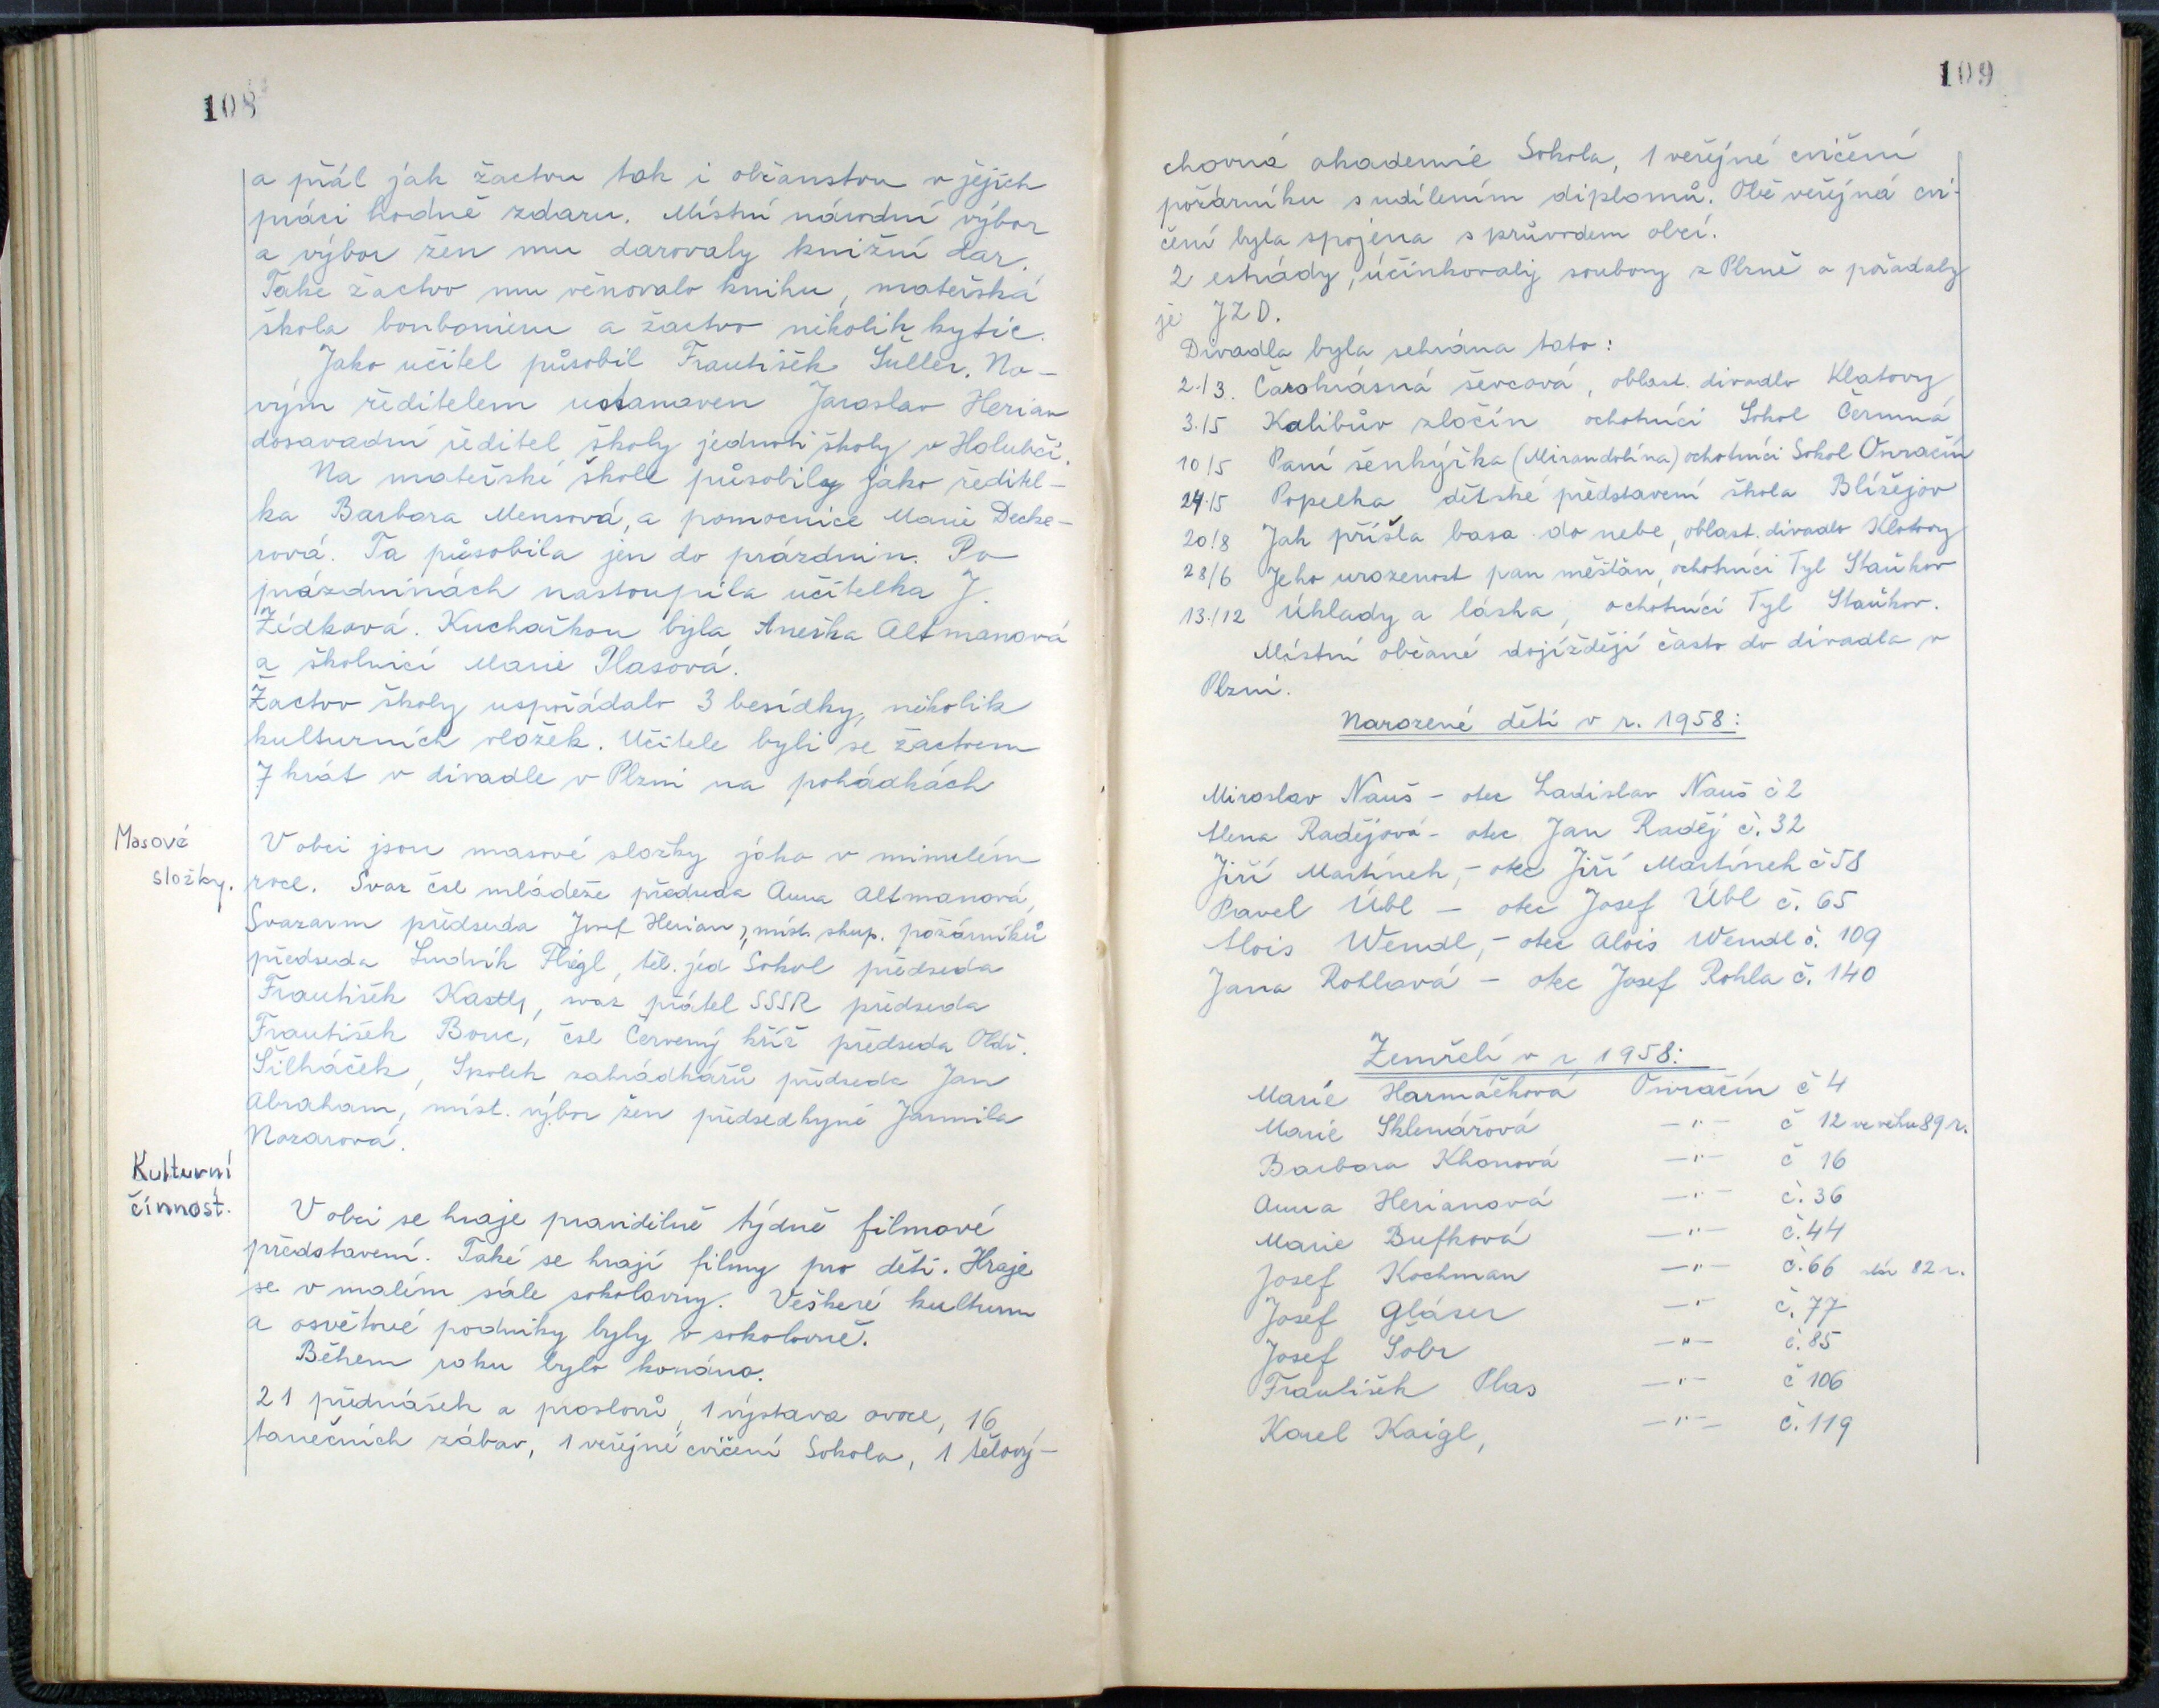 108
a přál jak žactvu tak i občanstvu v jejich
práci hodně zdaru. Místní národní výbor
a výbor žen mu darovaly knižní dar.
Také žactvo mu věnovalo knihu, mateřská
škola bonbonieru a žactvo několik kytic.
Jako učitel působil František Šuller. No-
vým ředitelem ustanoven Jaroslav Herian
dosavadní ředitel školy jednotř školy v Holubči.
Na mateřské škole působily jako ředitel-
ka Barbora Mensová, a pomocnice Marie Decke-
rová. Ta působila jen do prázdnin. Po
prázdninách nastoupila učitelka J.
Žídková. Kuchařkou byla Anežka Altmanová
a školnicí Marie Plasová.
Žactvo školy uspořádalo 3 besídky, několik
kulturních vložek. Učitelé byli se žactvem
7 krát v divadle v Plzni na pohádkách
Masové
složky.
V obci jsou masové složky jako v minulém
roce. Svaz čsl mládeže předseda Anna Altmanová,
Svazarm předseda Josef Herian, míst. skup. požárníků
předseda Ludvík Fliegl, těl. jed Sokol předseda
František Kastl, svaz přátel SSSR předseda
František Bouc, čsl Červený kříž předseda Oldř.
Šilháček, Spolek zahrádkářů předseda Jan
Abraham, míst. výbor žen předsedkyně Jarmila
Nozarová.
Kulturní
činnost.
V obci se hraje pravidelně týdně filmové
představení. Také se hrají filmy pro děti. Hraje
se v malém sále sokolovny. Veškeré kulturn
a osvětové podniky byly v sokolovně.
Během roku bylo konáno.
21 přednášek a proslovů, 1 výstava ovoce, 16
tanečních zábav, 1 veřejné cvičení Sokola, 1 tělový-
109
chovná akademie Sokola, 1 veřejné cvičení
požárníku s udílením diplomů. Obě veřejná cvi-
čení byla spojena s průvodem obcí.
2 estrády, účinkovaly soubory z Plzně a pořádaly
je JZD.
Divadla byla sehrána tato:
2./3. Čarokrásná ševcová, oblast. divadlo Klatovy
3./5 Kalibův zločin ochotníci Sokol Čermná
10/5 Paní šenkýřka (Mirandolina) ochotníci Sokol Osvračín
24./5 Popelka dětské představení škola Blížejov
20/8 Jak přišla basa do nebe, oblast. divadlo Klatovy
28/6 Jeho urozenost pan měšťan, ochotníci Tyl Staňkov
13./12 Úklady a láska, ochotníci Tyl Staňkov.
Místní občané dojíždějí často do divadla v
Plzni.
Narozené děti v r. 1958:
Miroslav Nauš - otec Ladislav Nauš č 2
Alena Radějová - otec Jan Raděj č. 32
Jiří Martínek, - otec Jiří Martínek č 58
Pavel Übl - otec Josef Übl č. 65
Alois Wendl, - otec Alois Wendl č. 109
Jana Rohlová - otec Josef Rohla č. 140
Zemřelí v r 1958:
Marie Harmáčková Osvračín č 4
Marie Sklenářová -"- č 12 ve věku 89 r.
Barbora Khonová -"- č 16
Anna Herianová -"- č. 36
Marie Bufková -"- č. 44
Josef Kochman -"- č. 66 82 r.
Josef Gläser -"- č. 77
Josef Šobr -"- č. 85
František Plas -"- č 106
Karel Kaigl, -"- č. 119